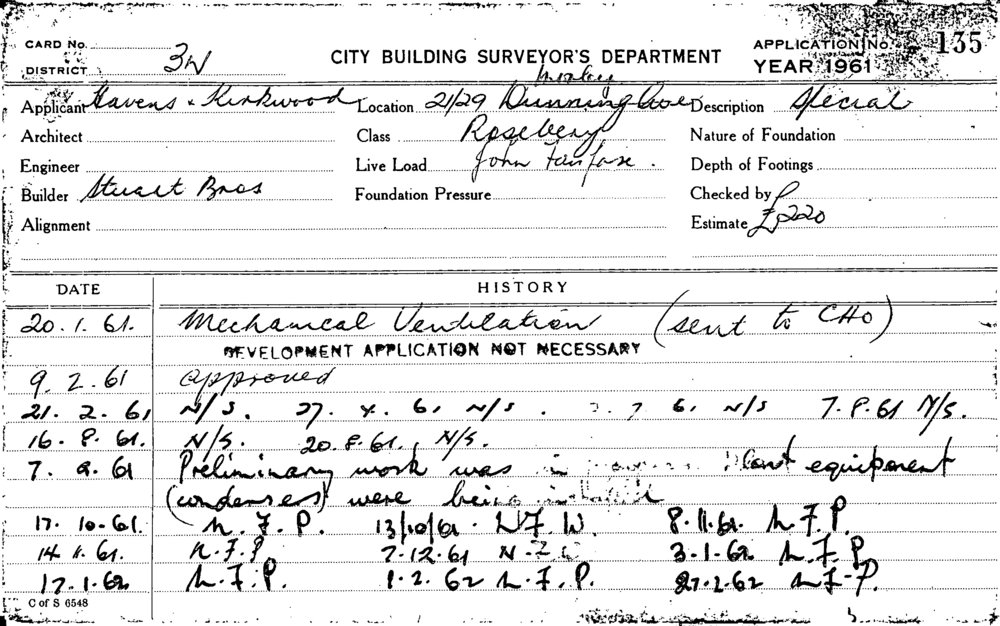 CARD No. APPLICATION No. 135
DISTRICT 3W CITY BUILDING SURVEYOR'S DEPARTMENT YEAR 1961
Applicant Havens & Kirkwood Location 21/29 Dunning Ave Description Special
Architect Class Rosebery Nature of Foundation
Engineer Live Load John Fairfax. Depth of Footings
Builder Stuart Bros Foundation Pressure Checked by
Alignment Estimate £220
DATE HISTORY
20.1.61. Mechanical Ventilation (sent to CHO)
DEVELOPMENT APPLICATION NOT NECESSARY
9.2.61 approved
21.2.61 N/S. 27.4.61 N/S. 7 61 N/S 7.8.61 N/S.
16.8.61. N/S. 20.8.61. N/S.
7.9.61 Preliminary work was in plant equipment
(condensers) were being
17.10.61. N.F.P. 13/10/61. N.F.W. 8.11.61. N.F.P.
14.11.61. N.F.P 7.12.61 N.F. 3.1.62 N.F.P
17.1.62 N.F.P. 1.2.62 N.F.P. 27.2.62 N.F.P.
C of S 6548